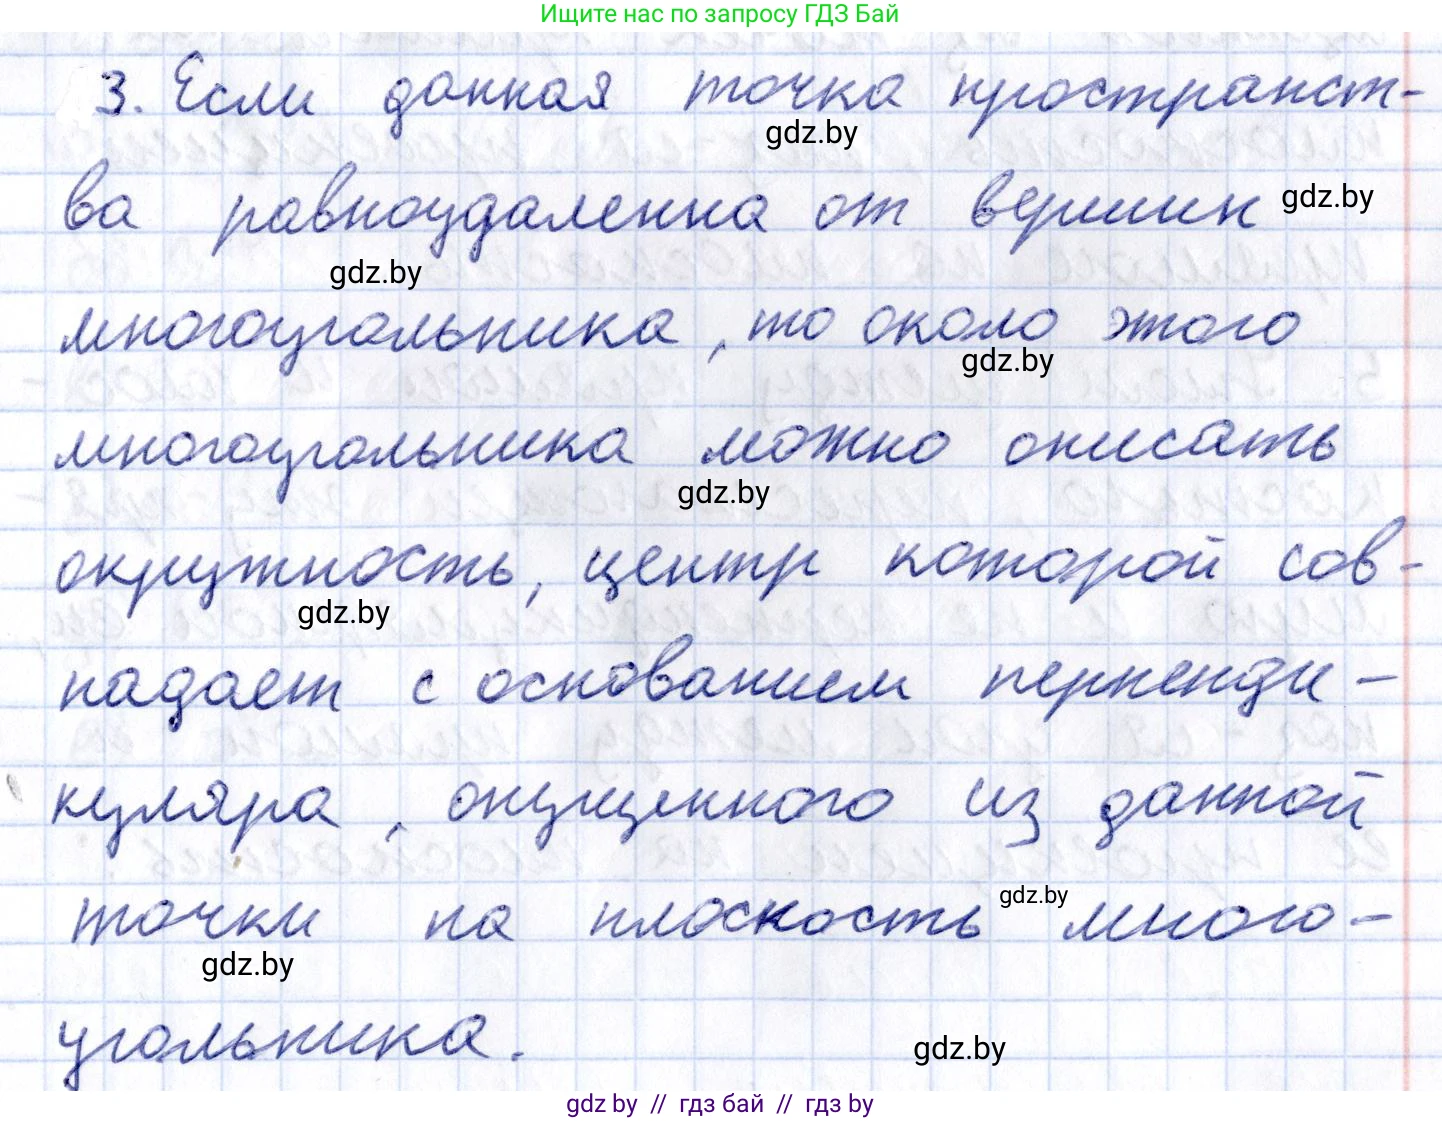 Ищите нас по запросу ГДЗ Бай
3. Если данная точка пространст-
gdz.by
ва равноудалена от вершин gdz.by
gdz.by
многоугольника, то около этого
gdz.by
многоугольника можно описать
gdz.by
окружность, центр которой сов-
gdz.by
падает с основанием перпенди-
куляра, опущенного из данной
точки на плоскость много-
gdz.by
gdz.by
угольника.
gdz.by
gdz.by // гдз бай // гдз by